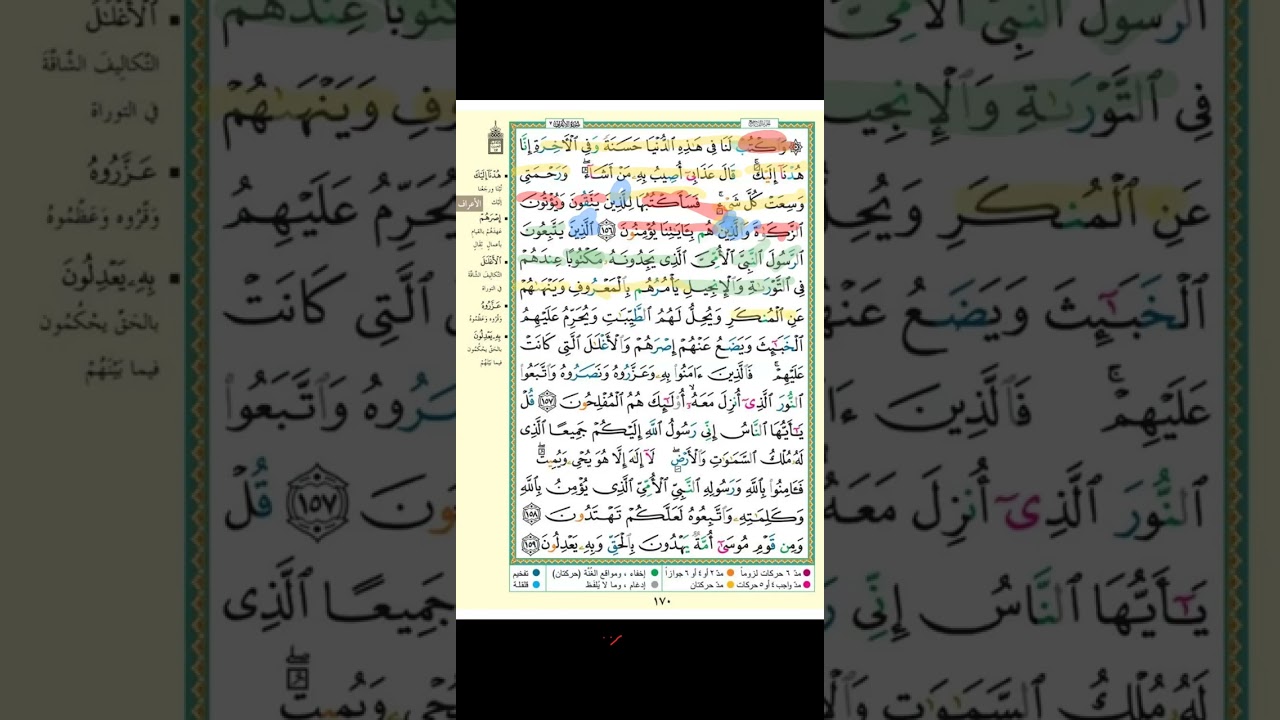 سورة الأعراف ٧
۞ وَٱكْتُبْ لَنَا فِى هَٰذِهِ ٱلدُّنْيَا حَسَنَةً وَفِى ٱلْـَٔاخِرَةِ إِنَّا
هُدْنَآ إِلَيْكَ ۚ قَالَ عَذَابِىٓ أُصِيبُ بِهِۦ مَنْ أَشَآءُ ۖ وَرَحْمَتِى
وَسِعَتْ كُلَّ شَىْءٍ ۚ فَسَأَكْتُبُهَا لِلَّذِينَ يَتَّقُونَ وَيُؤْتُونَ
ٱلزَّكَوٰةَ وَٱلَّذِينَ هُم بِـَٔايَٰتِنَا يُؤْمِنُونَ ١٥٦ ٱلَّذِينَ يَتَّبِعُونَ
ٱلرَّسُولَ ٱلنَّبِىَّ ٱلْأُمِّىَّ ٱلَّذِى يَجِدُونَهُۥ مَكْتُوبًا عِندَهُمْ
فِى ٱلتَّوْرَىٰةِ وَٱلْإِنجِيلِ يَأْمُرُهُم بِٱلْمَعْرُوفِ وَيَنْهَىٰهُمْ
عَنِ ٱلْمُنكَرِ وَيُحِلُّ لَهُمُ ٱلطَّيِّبَٰتِ وَيُحَرِّمُ عَلَيْهِمُ
ٱلْخَبَٰٓئِثَ وَيَضَعُ عَنْهُمْ إِصْرَهُمْ وَٱلْأَغْلَٰلَ ٱلَّتِى كَانَتْ
عَلَيْهِمْ ۚ فَٱلَّذِينَ ءَامَنُوا۟ بِهِۦ وَعَزَّرُوهُ وَنَصَرُوهُ وَٱتَّبَعُوا۟
ٱلنُّورَ ٱلَّذِىٓ أُنزِلَ مَعَهُۥٓ ۙ أُو۟لَٰٓئِكَ هُمُ ٱلْمُفْلِحُونَ ١٥٧ قُلْ
يَٰٓأَيُّهَا ٱلنَّاسُ إِنِّى رَسُولُ ٱللَّهِ إِلَيْكُمْ جَمِيعًا ٱلَّذِى
لَهُۥ مُلْكُ ٱلسَّمَٰوَٰتِ وَٱلْأَرْضِ ۖ لَآ إِلَٰهَ إِلَّا هُوَ يُحْىِۦ وَيُمِيتُ ۖ
فَـَٔامِنُوا۟ بِٱللَّهِ وَرَسُولِهِ ٱلنَّبِىِّ ٱلْأُمِّىِّ ٱلَّذِى يُؤْمِنُ بِٱللَّهِ
وَكَلِمَٰتِهِۦ وَٱتَّبِعُوهُ لَعَلَّكُمْ تَهْتَدُونَ ١٥٨
وَمِن قَوْمِ مُوسَىٰٓ أُمَّةٌ يَهْدُونَ بِٱلْحَقِّ وَبِهِۦ يَعْدِلُونَ ١٥٩
هُدْنَآ إِلَيْكَ
الأعراف
إِصْرَهُمْ
ٱلْأَغْلَٰلَ
التَّكَالِيفَ الشَّاقَّةَ
في التوراة
عَزَّرُوهُ
وَقَّرُوهُ وَعَظَّمُوهُ
بِهِۦ يَعْدِلُونَ
بالحَقِّ يَحْكُمُون
فيما بَيْنَهُمْ
مدّ ٦ حركات لزوماً
مدّ ٢ أو ٤ أو ٦ جوازاً
إخفاء ، ومواقع الغُنَّة (حركتان)
تفخيم
مدّ واجب ٤ أو ٥ حركات
مدّ حركتان
إدغام ، وما لا يُلفظ
قلقلة
١٧٠